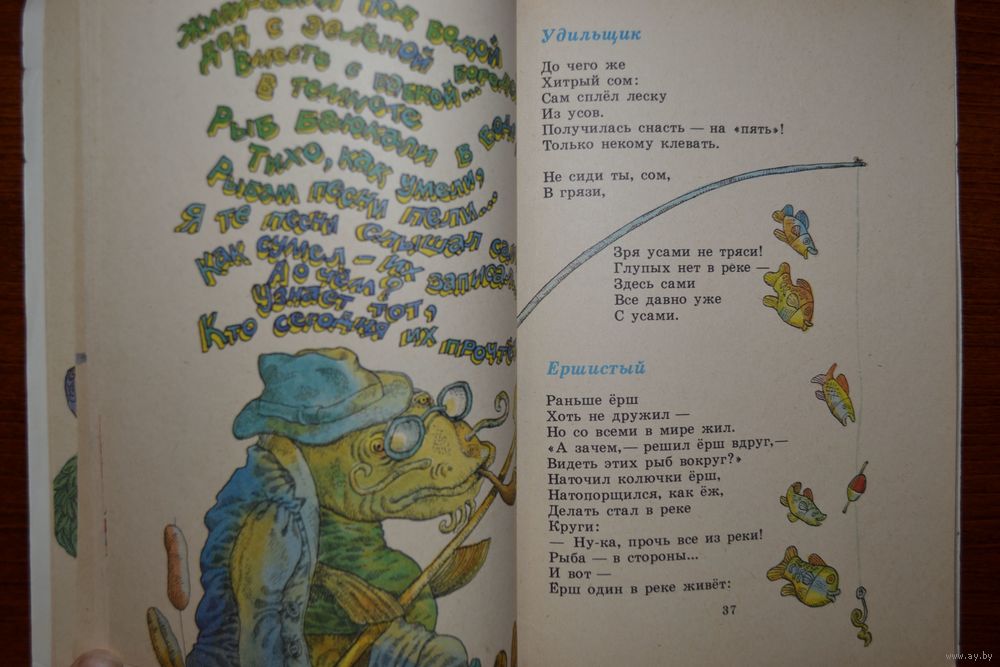 Жили-были под водой
Дед с зелёной
Вместе с бабкой...
в темноте
Рыб баюкали в
Тихо, как умели,
Рыбам песни пели...
Я те песни слышал сам
Как сумел — их записал
А о чём?
Узнает тот,
Кто сегодня их прочтё
Удильщик
До чего же
Хитрый сом:
Сам сплёл леску
Из усов.
Получилась снасть — на «пять»!
Только некому клевать.
Не сиди ты, сом,
В грязи,
Зря усами не тряси!
Глупых нет в реке —
Здесь сами
Все давно уже
С усами.
Ершистый
Раньше ёрш
Хоть не дружил —
Но со всеми в мире жил.
«А зачем,— решил ёрш вдруг,—
Видеть этих рыб вокруг?»
Наточил колючки ёрш,
Натопорщился, как ёж,
Делать стал в реке
Круги:
— Ну-ка, прочь все из реки!
Рыба — в стороны...
И вот —
Ёрш один в реке живёт:
37
www.ay.by